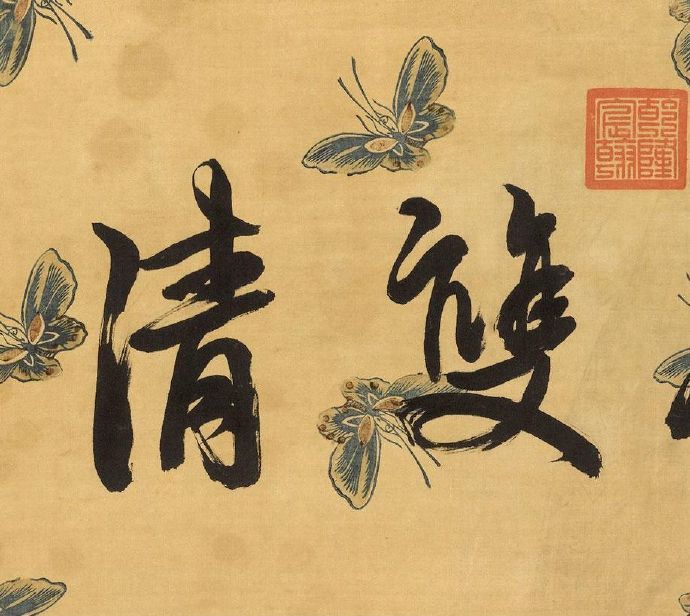 乾隆
宸翰
雙清